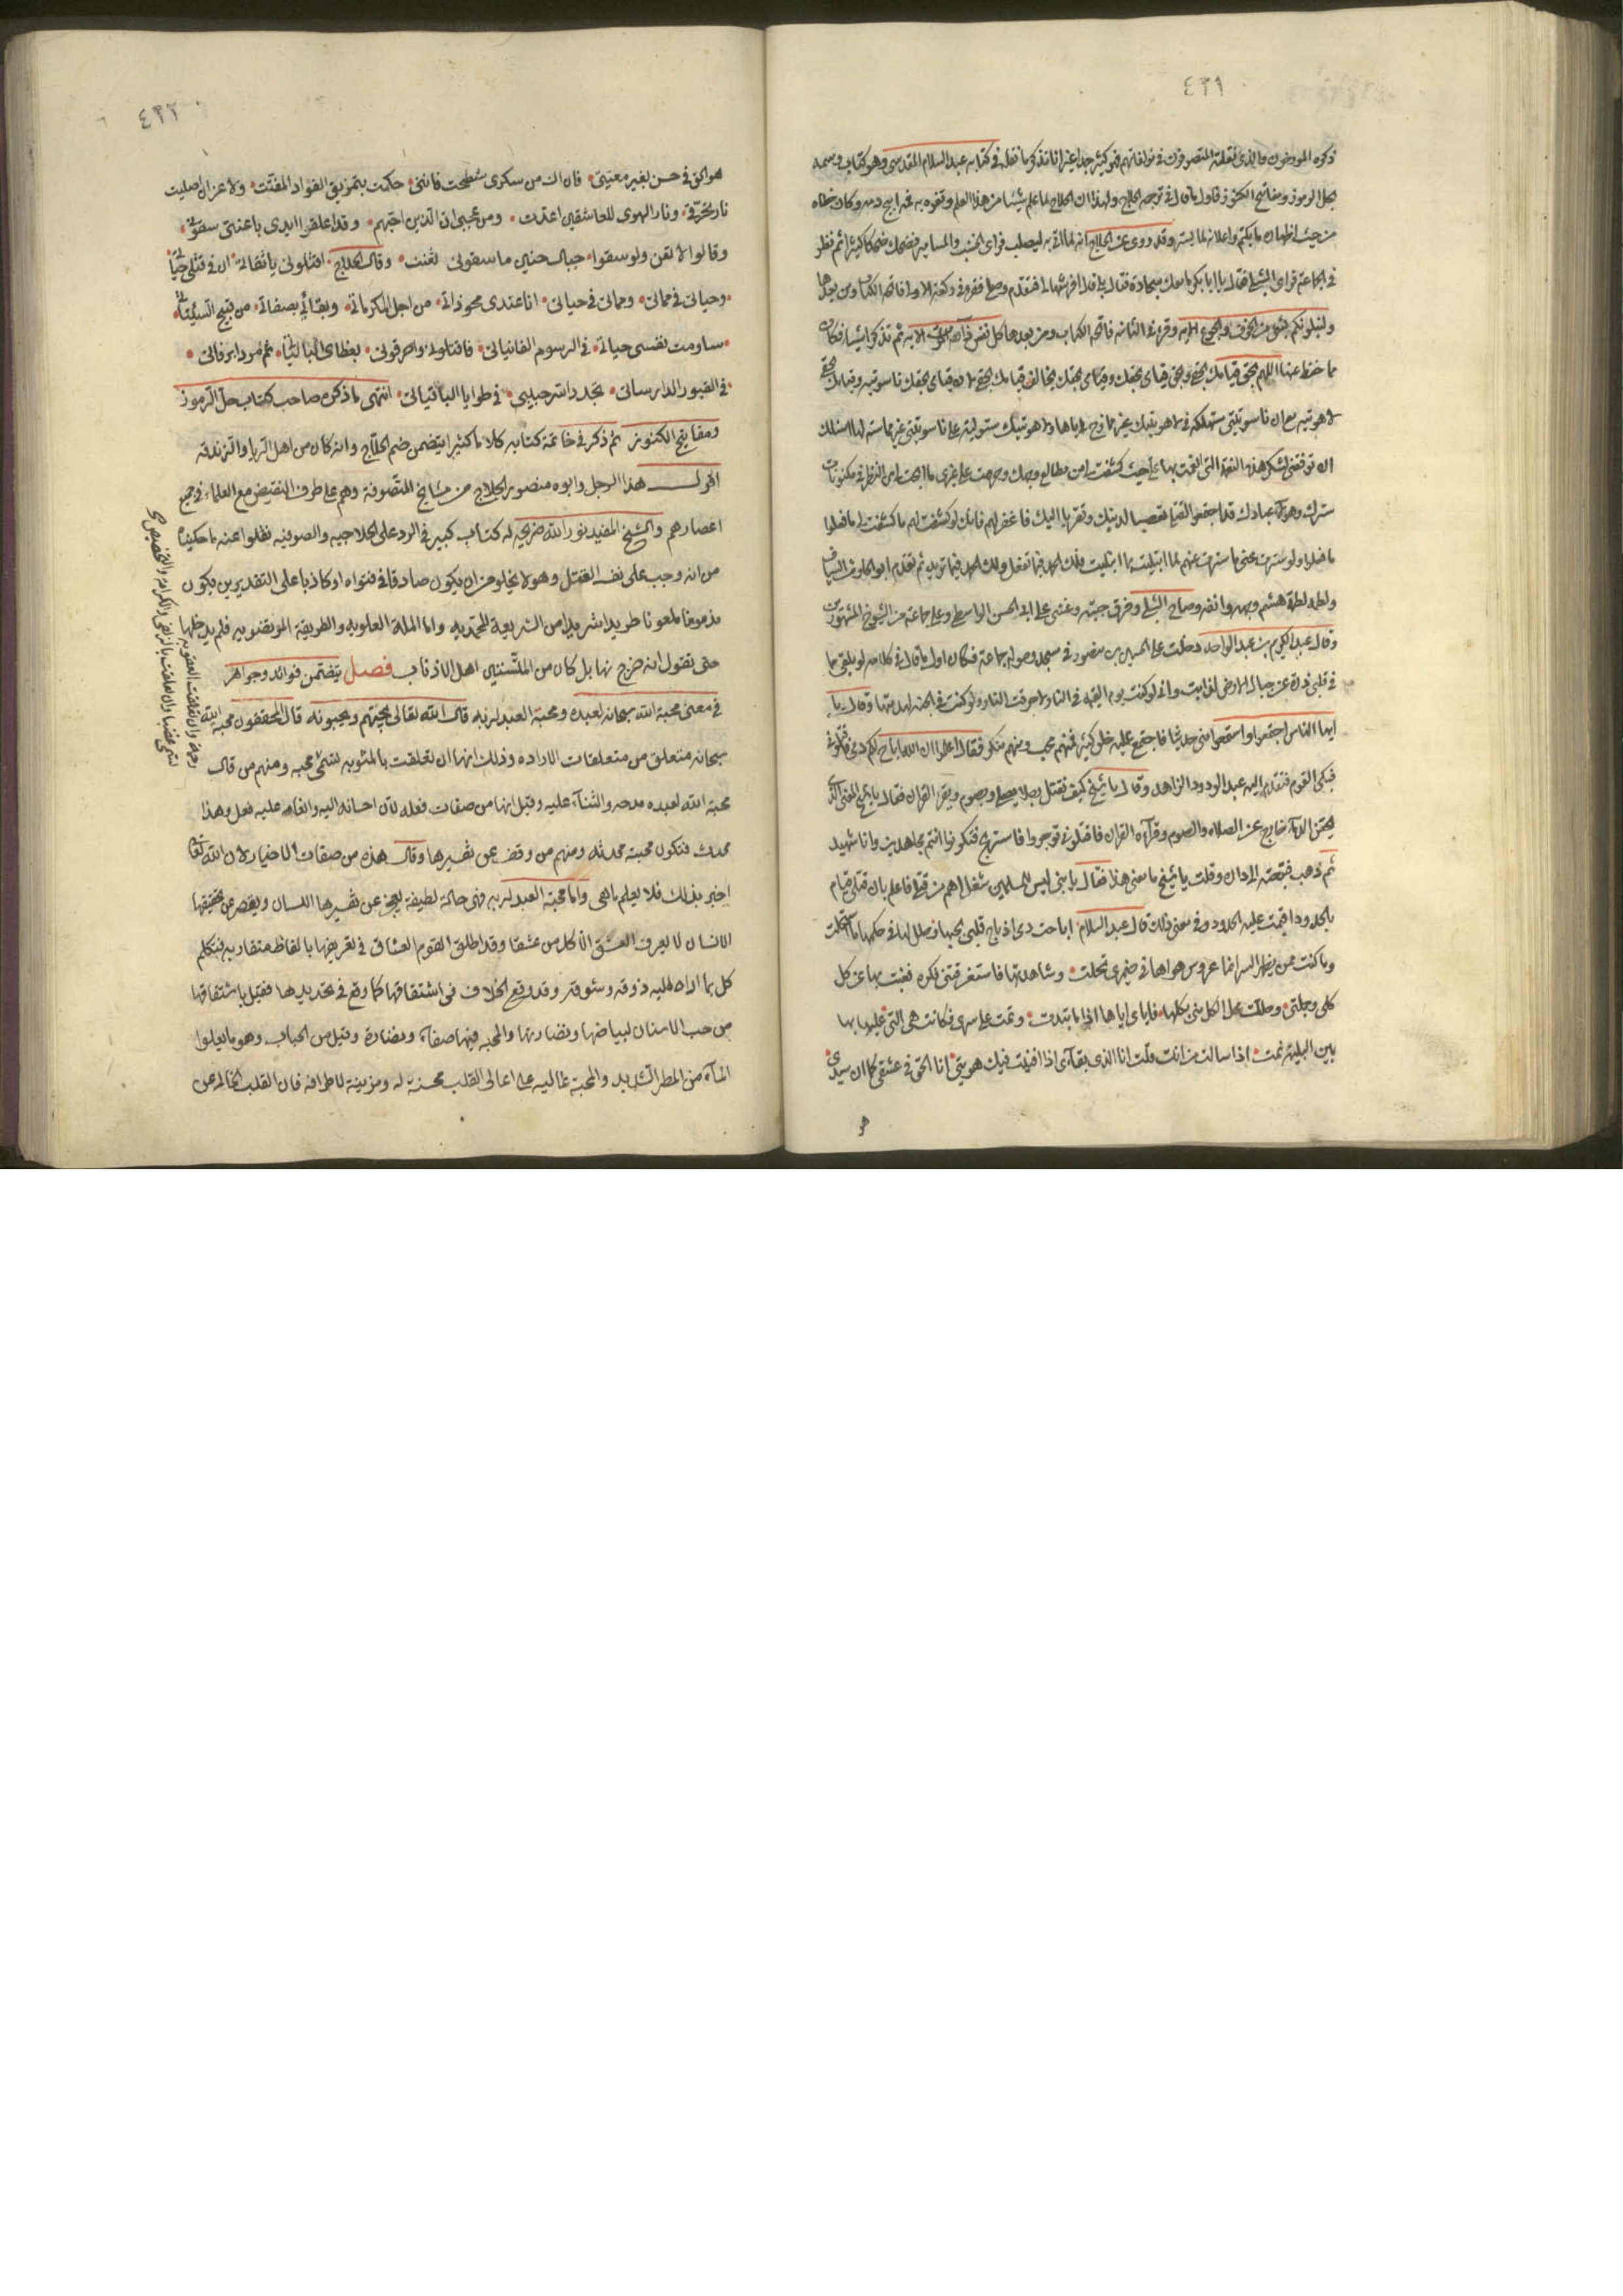 ٤٣١
ذكره المورخون والذى نقلته المتصوفون فى مولفاتهم فهو كثير جدا غير انا نذكر ما نقله فى كتابه عبد السلام المقدسى وهو كتاب وسمه
بحل الرموز ومفاتيح الكنوز قال اول ما قال فى ترجمه الحلاج ولهذا ان الحلاج لما علم شيئا من هذا العلم وتفوه به نحرا ابيح دمه وكان خطاه
من حيث اظهار ما يكتم واعلان لما يستر وقد روى عن الحلاج انه لما اتى به ليصلب فراى الخشب والمسامير فضحك ضحكا كثيرا ثم نظر
فى الجماعة فراى الشبلى فقال يا ابا بكر اما معك سجادة فقال بلى قال افرشها لى فتقدم وصلى فقرء فى ركعة الاولى فاتحة الكتاب ومن بعدها
ولنبلونكم بشئ من الخوف والجوع الايه وقرء فى الثانيه فاتحة الكتاب ومن بعدها كل نفس ذائقة الموت الايه ثم تذكر اشياء فكان
مما حفظ عنها اللهم بحق قيامك بحقى وبحق قيامى بحقك وقيامى بحقك يخالف قيامك بحقى لان قيامى بحقك ناسوتيه وقيامك بحقى
لاهوتيه مع ان ناسوتيتى مستهلكه فى لاهوتيتك غير ممازج اياها ولاهوتيتك مستولية على ناسوتيتى غير مماسة لها اسئلك
ان توفقنى لشكر هذه النعمة التى انعمت بها على حيث كشفت لى من مطالع وجهك وحرمت على غيرى ما ابحت لى من النظر فى مكنونات
سترك وهؤلاء عبادك قد اجتمعوا لقتلى تعصبا لدينك وتقربا اليك فاغفر لهم فانك لو كشفت لهم ما كشفت لى لما فعلوا
ما فعلوا ولو سترت عنى ما سترت عنهم لما ابتليت بما ابتليت فلك الحمد فيما تفعل ولك الحمد فيما تريد ثم تقدم ابو الحارث السياف
ولطمه لطمة هشم وجهه وانفه وصاح الشبلى ومزق جبته وغشى على ابى الحسن الواسطى وعلى جماعة من الشيوخ المشهورين
وقال عبد الكريم بن عبد الواحد دخلت على الحسين بن منصور فى مسجد وحوله جماعة فكان اول ما قال فى كلامه لو يلقى ما
فى قلبى ذرة على جبال الارض لذابت وانى لو كنت يوم القيمه فى النار لاحرقت النار ولو كنت فى الجنه لهدمتها وقال يا
ايها الناس اجتمعوا واسمعوا منى حديثا فاجتمع عليه خلق كثير فمنهم محب ومنهم منكر فقال اعلموا ان الله اباح لكم دمى فاقتلونى
فبكى القوم فتقدم اليه عبد الودود الزاهد وقال يا شيخ كيف نقتل رجلا يصلى ويصوم ويقرء القران فقال يا شيخ المعنى الذى
يحقن الدماء خارج عن الصلاه والصوم وقرآءه القران فاقتلونى توجروا فاستريح فتكونوا انتم مجاهدين وانا شهيد
ثم ذهب فتبعته الى داره وقلت يا شيخ ما معنى هذا فقال يا بنى ليس للمسلمين شغل اهم من قتلى فاعلم بان قتلى قيام
بالحدود اقيمت عليه الحدود وفى معنى ذلك قال عبد السلام اباحت دمى اذ باح قلبى بحبها وحل لها فى حكمها ما استحلت
وما كنت ممن يظهر السر انما عروس هواها فى ضميرى تجلت وشاهدتها فاستغرقتنى فكره فغبت بها عن كل
كلى وجملتى وحلت محل الكل منى بكلها فاياى اياها اذا ما تبدت ونمت على سرى فكانت هى التى عليها بها
بين البرية نمت اذا سالت من انت قلت انا الذى بقآءى اذا افنيت فيك هويتى انا الحق فى عشقى كما ان سيدى
هو
٤٣٢
هو الحق فى حسن بغير معيتى فان اك من سكرى شطحت فاننى حكمت بتمزيق الفواد المفتت ولا غرو ان اصليت
نار تحرقى ونار الهوى للعاشقين اعدت ومن عجبى ان الذين احبهم وقد اعلقوا ايدى باعنتى سقونى
وقالوا لا تغن ولو سقوا جبال حنين ما سقونى لغنت وقال الحلاج اقتلونى يا ثقاتى ان فى قتلى حياتى
وحياتى فى مماتى ومماتى فى حياتى انا عندى محو ذاتى من اجل المكرماتى وبقآئى بصفاتى من قبيح السيئاتى
ساومت نفسى حياتى فى الرسوم الفانياتى فاقتلونى واحرقونى بعظامى الباليات ثم مروا برفاتى
فى القبور الدارساتى تجدوا سر حبيبى فى طوايا الباقياتى انتهى ما ذكره صاحب كتاب حل الرموز
ومفاتيح الكنوز ثم ذكر فى خاتمة كتابه كلاما كثيرا يتضمن ضم الحلاج وانه كان من اهل الريا والزندقه
اقول هذا الرجل وابوه منصور الحلاج من مشايخ المتصوفة وهم على طرف النقيض مع العلماء فى جميع
اعصارهم والشيخ المفيد نور الله ضريحه له كتاب كبير فى الرد على الحلاجيه والصوفيه نقلوا عنه ما حكيناه
من انه وجب على نفسه القتل وهو لا يخلو من ان يكون صادقا فى فتواه او كاذبا على التقديرين يكون
مذموما ملعونا طريدا شريدا من الشريعة المحمديه واما الملة العلويه والطريقة المرتضويه فلم يدخلها
حتى يقول انه خرج منها بل كان من المتسننين اهل الاذناب فصل يتضمن فوائد وجواهر
فى معنى محبة الله سبحانه لعبده ومحبة العبد لربه قال الله تعالى يحبهم ويحبونه قال المحققون محبة الله
سبحانه متعلق من متعلقات الاراده وذلك انها ان تعلقت بالمثوبه تسمى محبه ومنهم من قال
محبة الله لعبده مدحه والثنآء عليه وقيل انها من صفات فعله لان احسانه اليه وانعامه عليه فعل وهذا
محدث فتكون محبته محدثه ومنهم من وقف عن تفسيرها وقال هذه من صفات الاخبار لان الله تعالى
اخبر بذلك فلا يعلم ما هى واما محبة العبد لربه فهى حالة لطيفة يعجز عن تفسيرها اللسان ويقصر عن تحقيقها
الانسان لا يعرف العشق الا كل من عشقا وقد اطلق القوم العشاق فى تعريفها بالفاظ متقاربه فتكلم
كل بما اداه اليه ذوقه وشوقه وقد وقع الخلاف فى اشتقاقها كما وقع فى تحديدها فقيل باشتقاقها
من حب الاسنان لبياضها ونضارتها والمحبه فيها صفآء ونضارة وقيل من الحباب وهو ما يعلوا
المآء من المطر الشديد والمحبة غاليه على اعالى القلب محسنة له ومزينة لاطرافه فان القلب الخالى من
رحمة وان تعلقت العقوبه
تسمى غضبا وان تعلقت بالرضى والكرامه والتخصيص